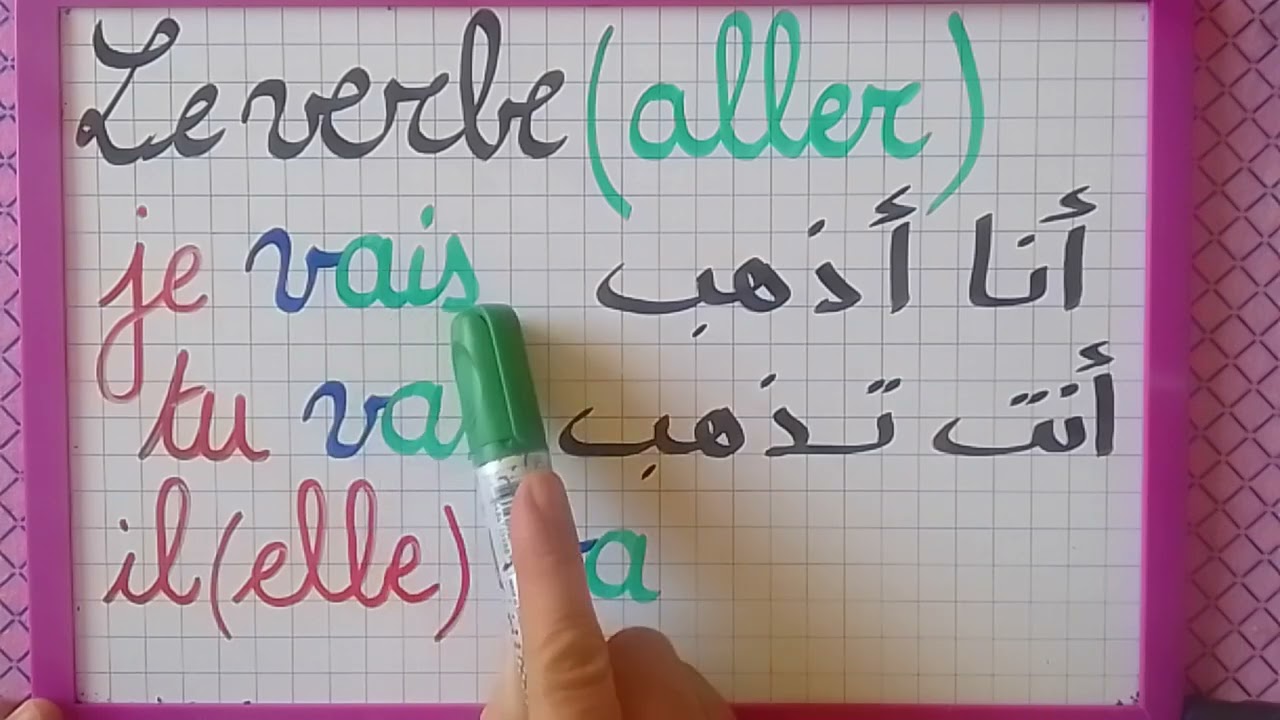 Le verbe (aller)
je vais أنا أذهب
tu أنت تذهب
il (elle)